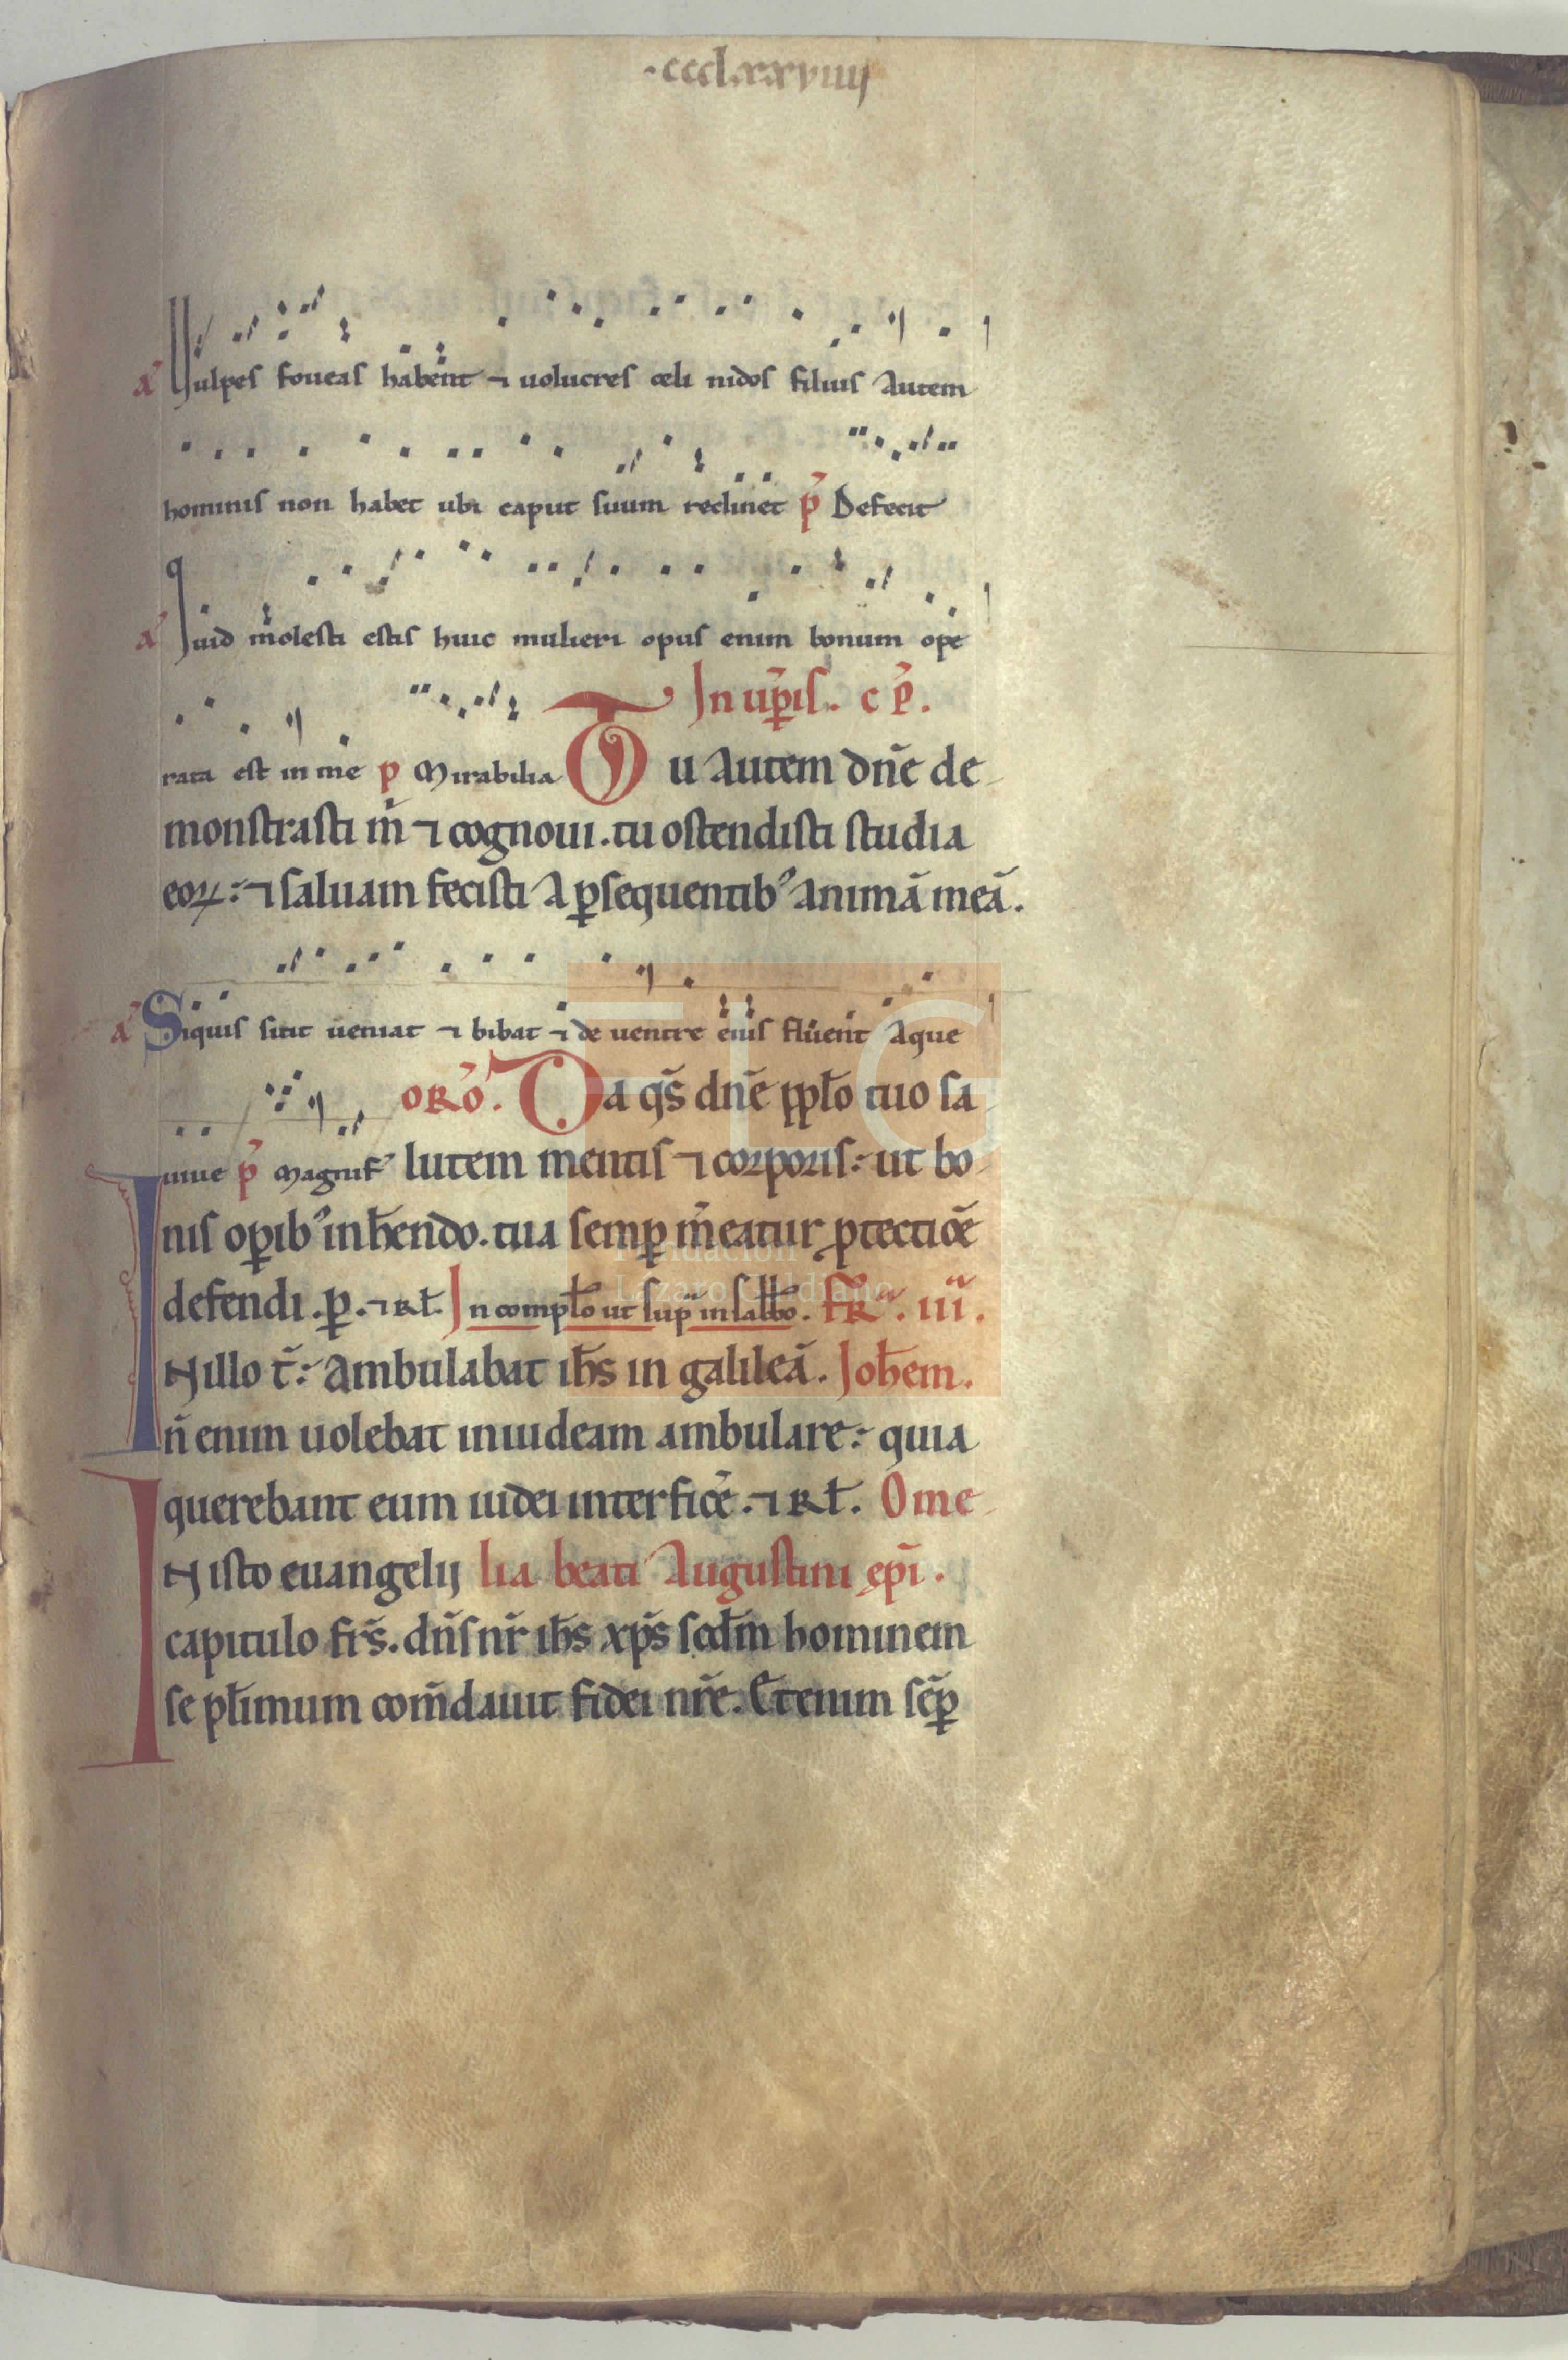 ·ccclxxxviiij
a Uulpes foueas habent ⁊ uolucres celi nidos filius autem
hominis non habet ubi caput suum reclinet p̃ Defecit
a Quid molesti estis huic mulieri opus enim bonum ope
In up̃is. c p̃.
rata est in me p Mirabilia Tu autem dñe de
monstrasti m̃ ⁊ cognoui. tu ostendisti studia
eoꝝ: ⁊ saluam fecisti a ꝑsequentib' animã meã.
a Siquis sitit ueniat ⁊ bibat ⁊ de uentre eius fluent aque
orõ. Da qs̃ dñe pplo tuo sa
uiue p̃ magnif' lutem mentis ⁊ corporis: ut bo
nis oꝑib' inh̃endo. tua semꝑ m̃eatur ꝓtectiõe
defendi. ꝑ. ⁊ Rł. In compło ut sup̃ in sabbo. fr̃a. iii.
INillo t̃: Ambulabat ih̃s in galileã. Joh̃em.
ñ enim uolebat iniudeam ambulare: quia
querebant eum iudei interfice̾. ⁊ Rł. Ome
INisto euangelij lia beati Augustini ep̃i.
capitulo fr̃s. dñs nr̃ ih̃s xp̃s sedm̃ hominem
se płimum com̃dauit fidei nr̃e. Etenim sẽꝑ
Fundación
Lázaro Galdiano